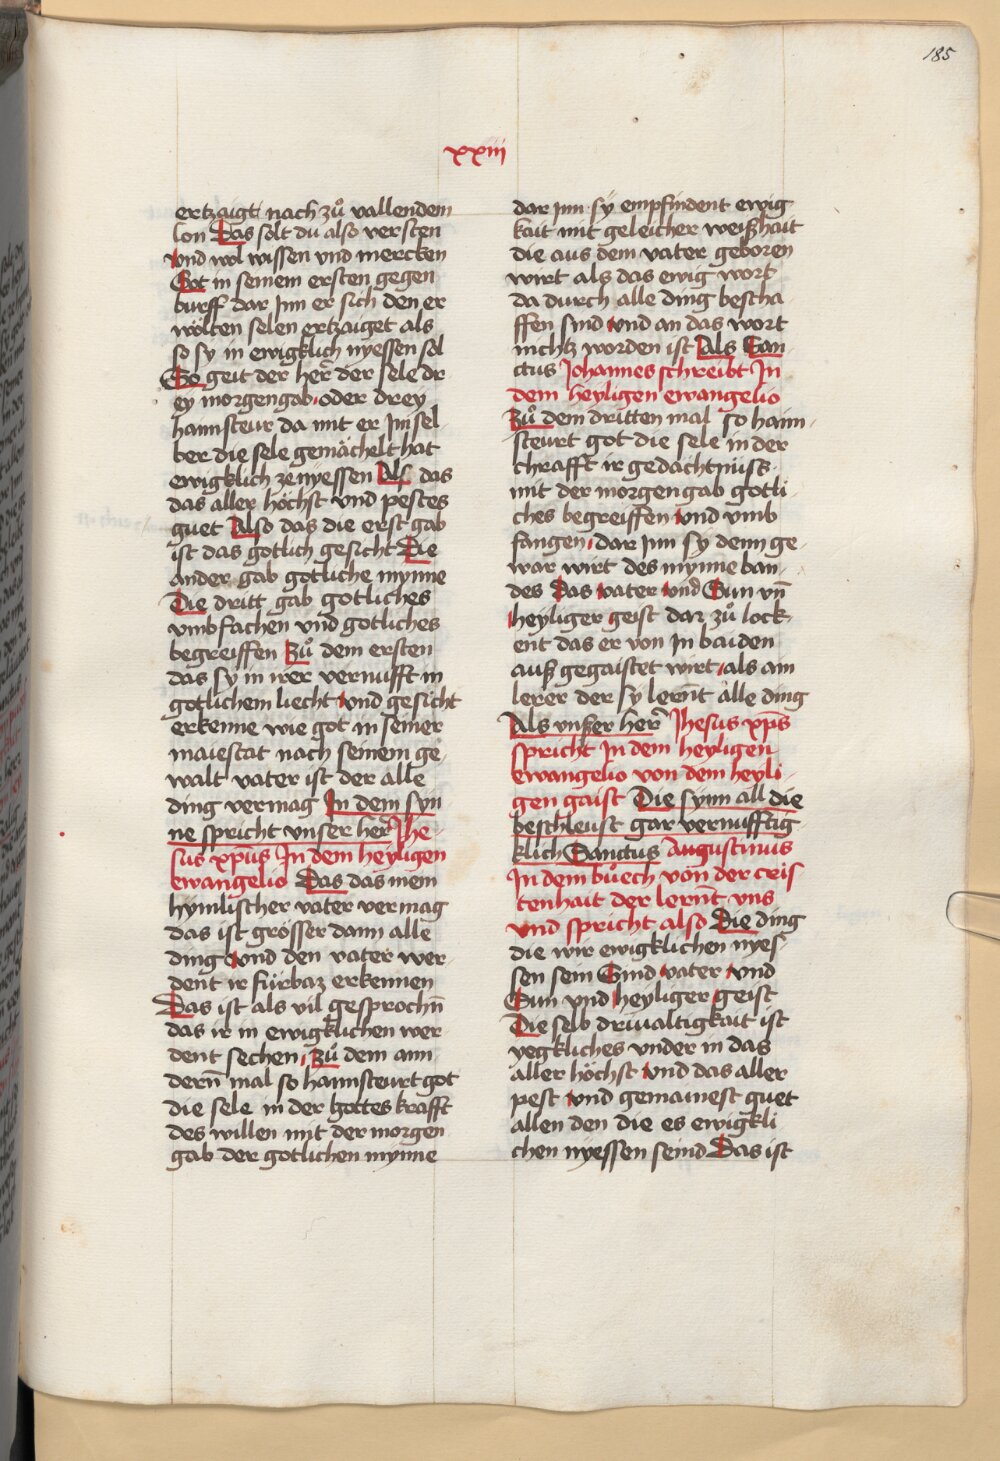 185
xxiii
ertzaigt nach zů vallendem
lon Das solt du also versten
vnd wol wissen vnd mercken
Got in seinem ersten gegen
burff dar Jnn er sich den er
wölten selen ertzaiget als
so sy in ewigklich nyessen sol
So geit der her der sele dr
ey morgengab oder drey
hannsteur da mit er Jm sel
ber die sele gemächelt hat
ewigklich ze nyessen Als das
das aller höchst vnd pestes
guet Also das die erst gab
ist das gotlich gesicht Die
ander gab gotliche mynne
Die dritt gab gotliches
vmbfachen vnd gotliches
begreiffen Zů dem ersten
das sy in irer vernufft in
gotlichem liecht vnd gesicht
erkenne wie got in seiner
maiestat nach seinem ge
walt vater ist der alle
ding vermag In dem syn
ne spricht vnser her Jhe
sus xp̄us In dem heyligen
ewangelio Das das mein
hymlischer vater vermag
das ist grösser dann alle
ding vnd den vater wer
dent ir fürbaz erkennen
Das ist als vil gesprochn̄
das ir in ewigklichen wer
dent sechen, Zů dem ann
dern̄ mal so hannsteurt got
die sele in der gottes krafft
des willen mit der morgen
gab der gotlichen mynne
dar Jnn sy empfindent ewig
kait mit geleicher weißhait
die aus dem vater geboren
wirt als das ewig wort
da durch alle ding bescha
ffen sind vnd an das wort
nichtz worden ist Als San
ctus Johannes schreibt In
dem heyligen ewangelio
Zů dem dritten mal so hann
steurt got die sele in der
chrafft ir gedachtnüss
mit der morgengab gotli
ches begreiffen vnd vmb
fangen, dar Jnn sy denn ge
war wirt des mynne ban
des Das vater vnd Sun vn̄
heyliger geist dar zů lock
ent das er von In baiden
auß gegaistet wirt, als ain
lerer der sy lern̄t alle ding
Als vnser her Jhesus xp̄s
spricht In dem heyligen
ewangelio von dem heyli
gen gaist Die synn all die
beschleust gar vernufftig
klich Sanctus Augustinus
In dem bůech von der cris
tenhait der lern̄t vns
vnd spricht also Die ding
die wir ewigklichen nyes
sen sein Sind vater vnd
Sun vnd heyliger geist
Die selb driualtigkait ist
yegkliches vnder in das
aller höchst vnd das aller
pest vnd gemainest guet
allen den die es ewigkli
chen nyessen seind Das ist